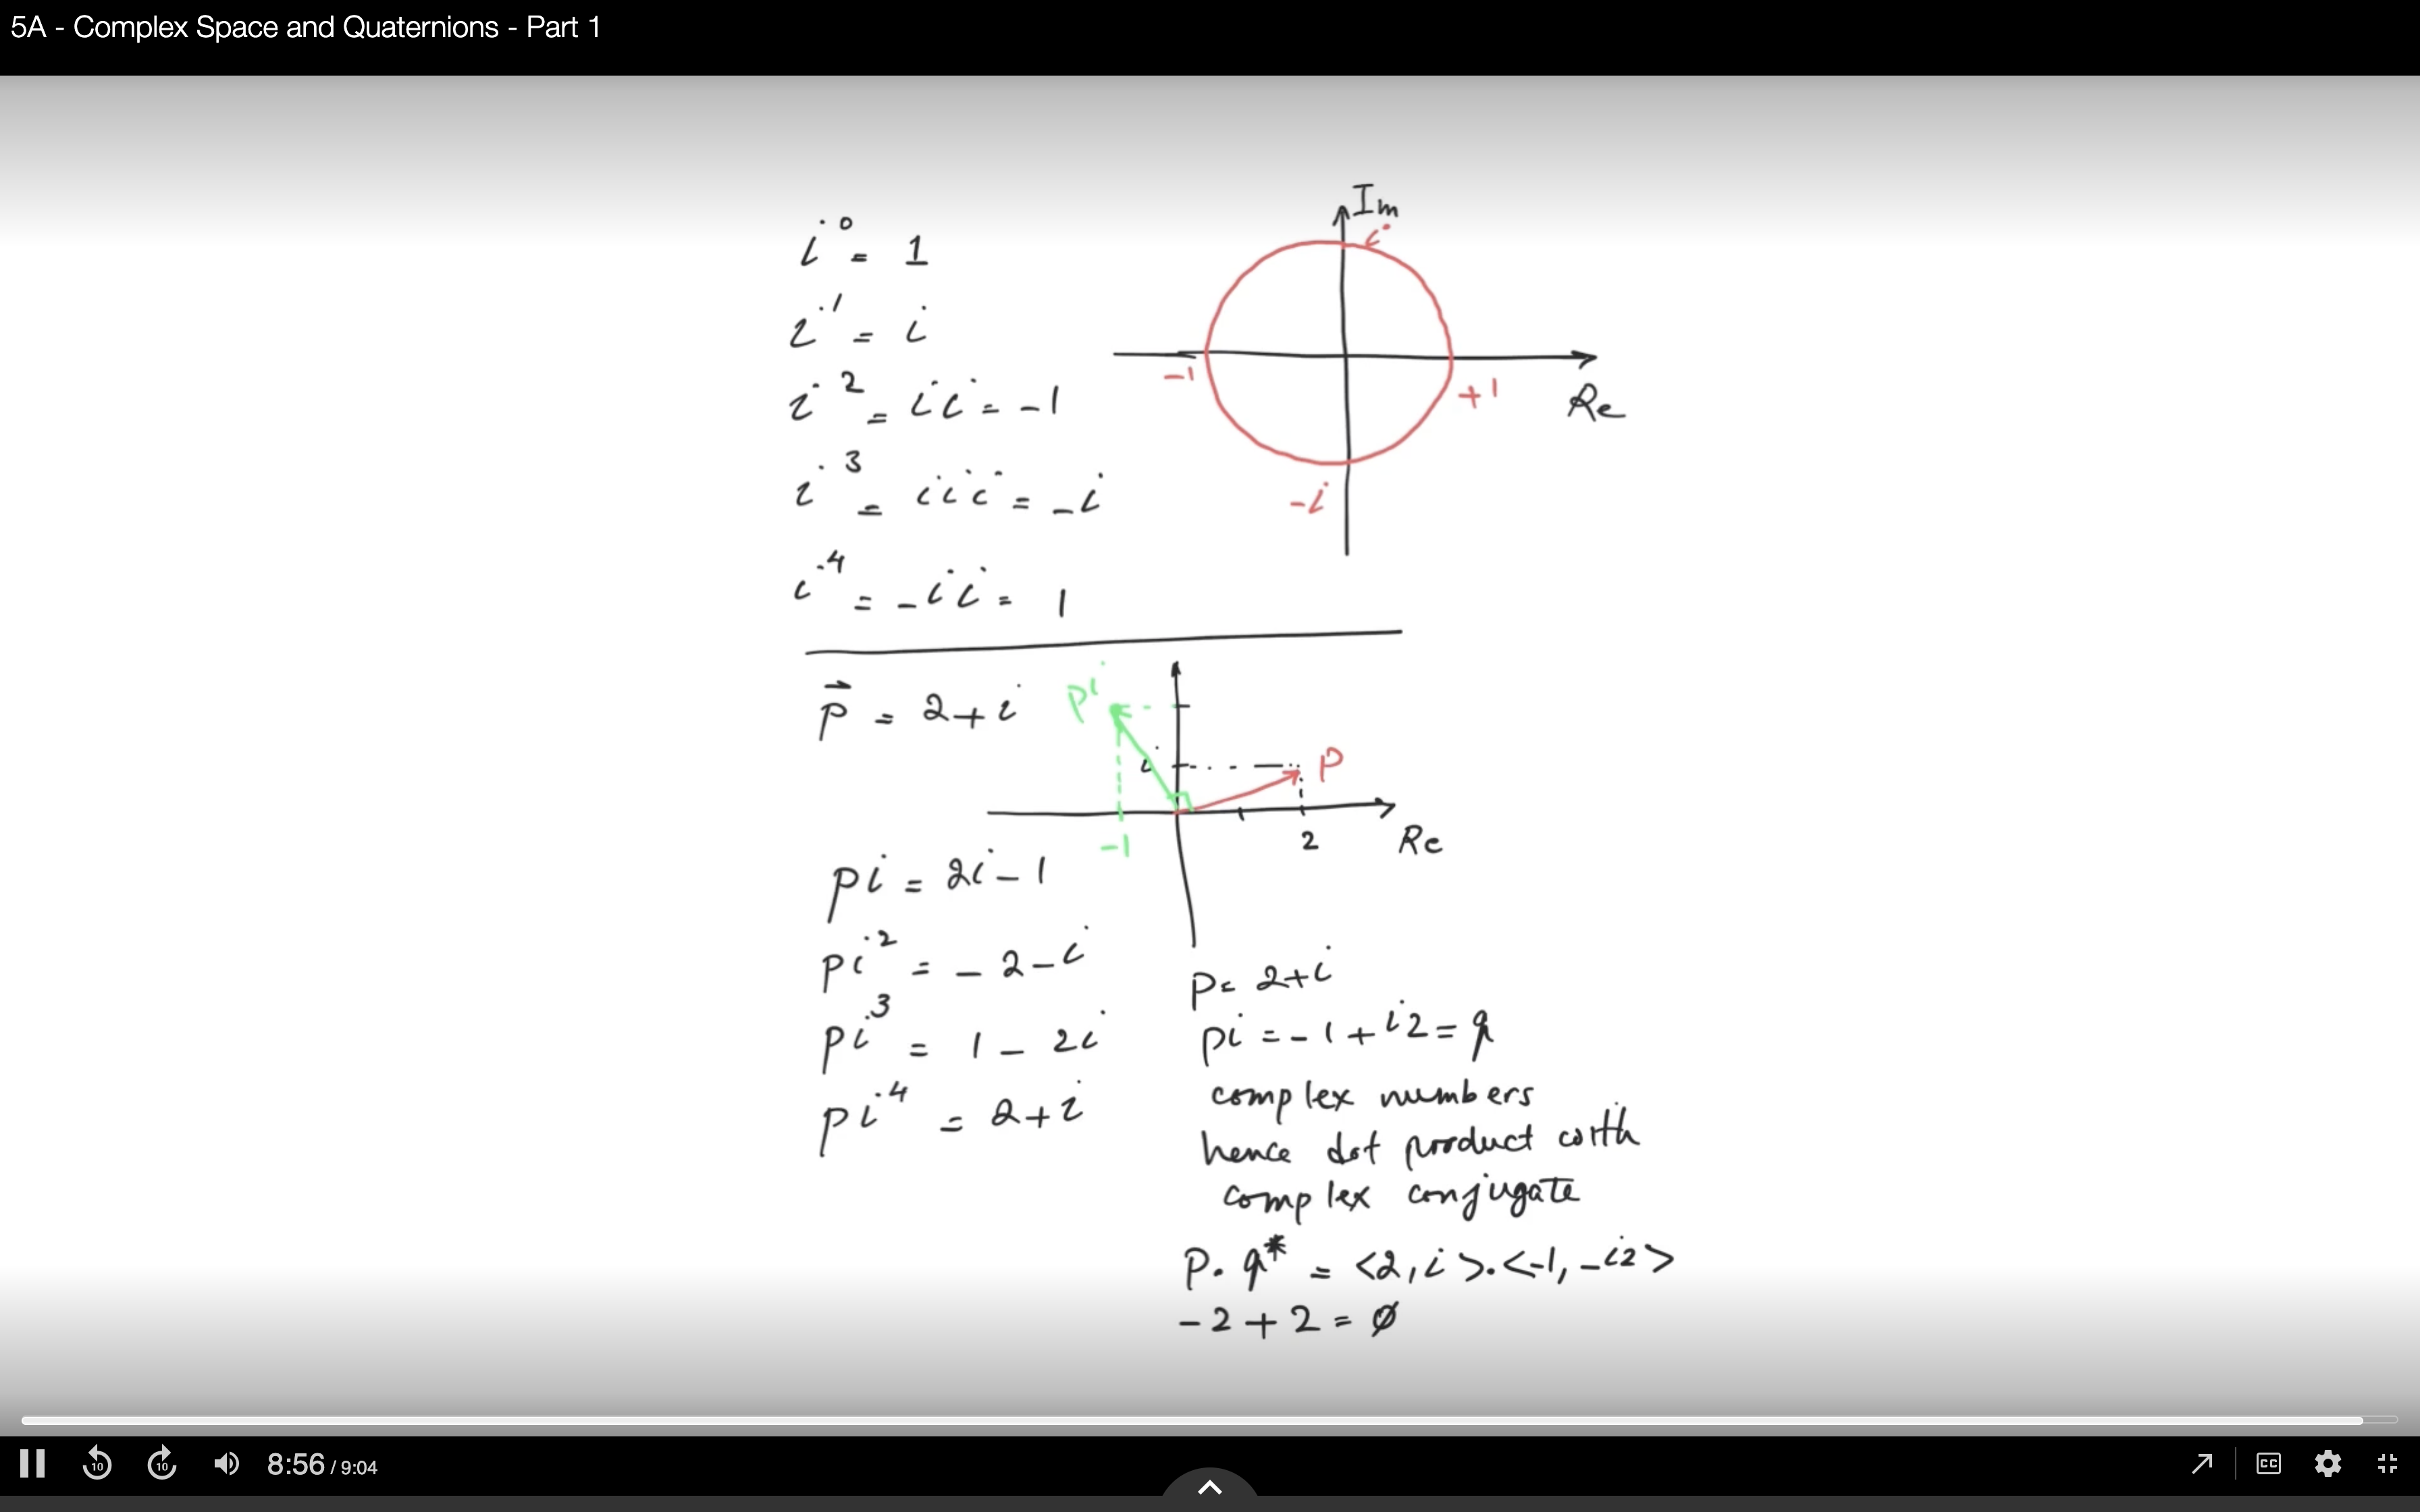 5A - Complex Space and Quaternions - Part 1
i⁰ = 1
i¹ = i
i² = ii = -1
i³ = iii = -i
i⁴ = -ii = 1
Im
i
-1
+1
Re
-i
p⃗ = 2+i
pi
i
P
-1
2
Re
pi = 2i-1
pi² = -2-i
pi³ = 1-2i
pi⁴ = 2+i
P= 2+i
pi = -1+i2 = q
complex numbers
hence dot product with
complex conjugate
P. q* = <2,i>.<-1,-i2>
-2+2=Ø
10
10
8:56 / 9:04
CC